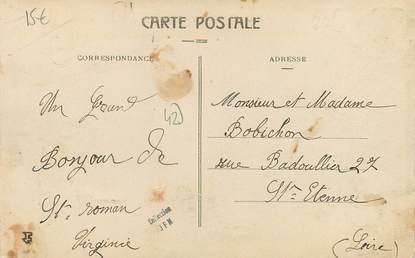 15€
CARTE POSTALE
CORRESPONDANCE
ADRESSE
Un Grand
42
Bonjour de
St. roman
Virginie
Collection
J F M
Monsieur et Madame
Bobichon
rue Badoullier 27
St. Etenne
(Loire)